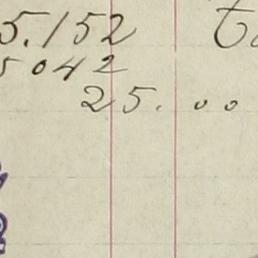 5.152
5042
25. . .